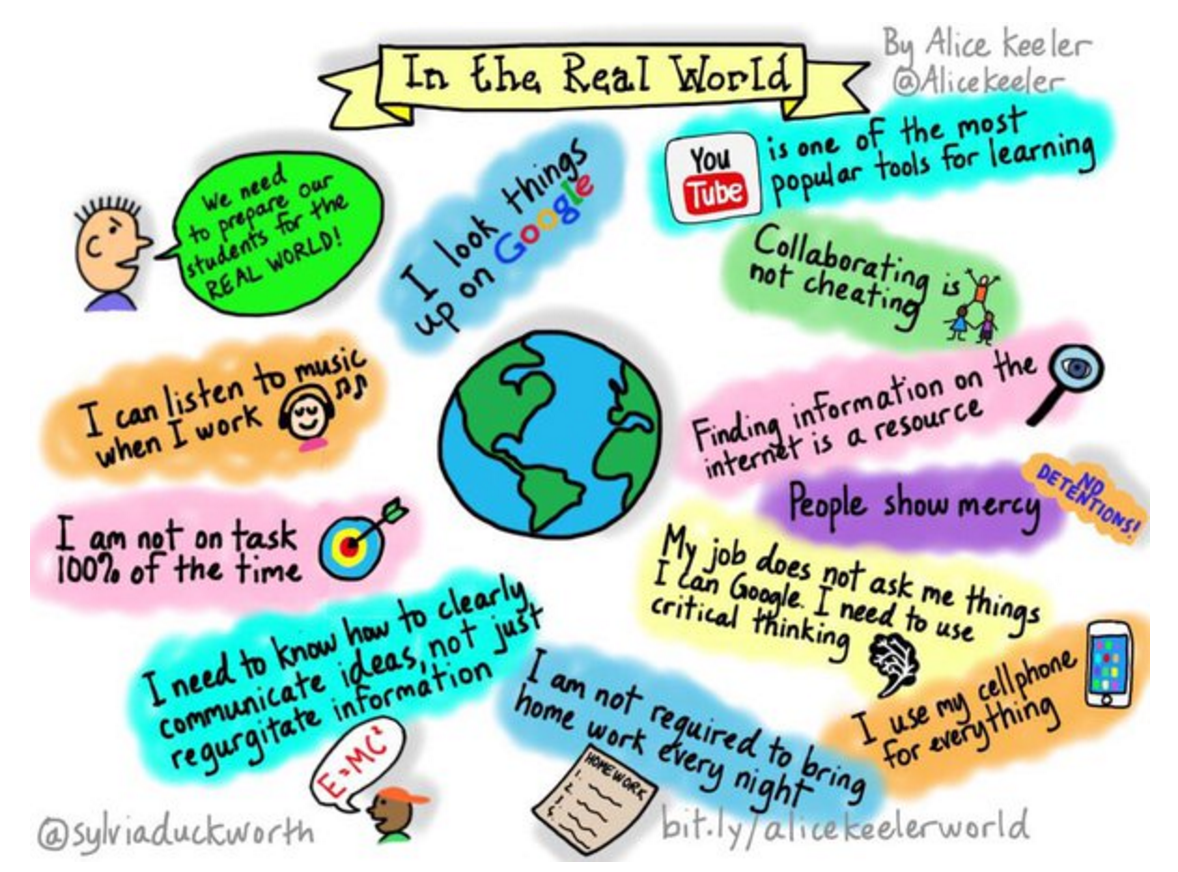 In the Real World
By Alice Keeler
@Alicekeeler
We need
to prepare our
students for the
REAL WORLD!
I look things
up on Google
You
Tube
is one of the most
popular tools for learning
Collaborating is
not cheating
I can listen to music
when I work
Finding information on the
internet is a resource
People show mercy
NO
DETENTIONS!
I am not on task
100% of the time
My job does not ask me things
I can Google. I need to use
critical thinking
I need to know how to clearly
communicate ideas, not just
regurgitate information
E=MC²
I am not required to bring
home work every night
HOMEWORK
1.
2.
3.
4.
I use my cellphone
for everything
@sylviaduckworth
bit.ly/alicekeelerworld